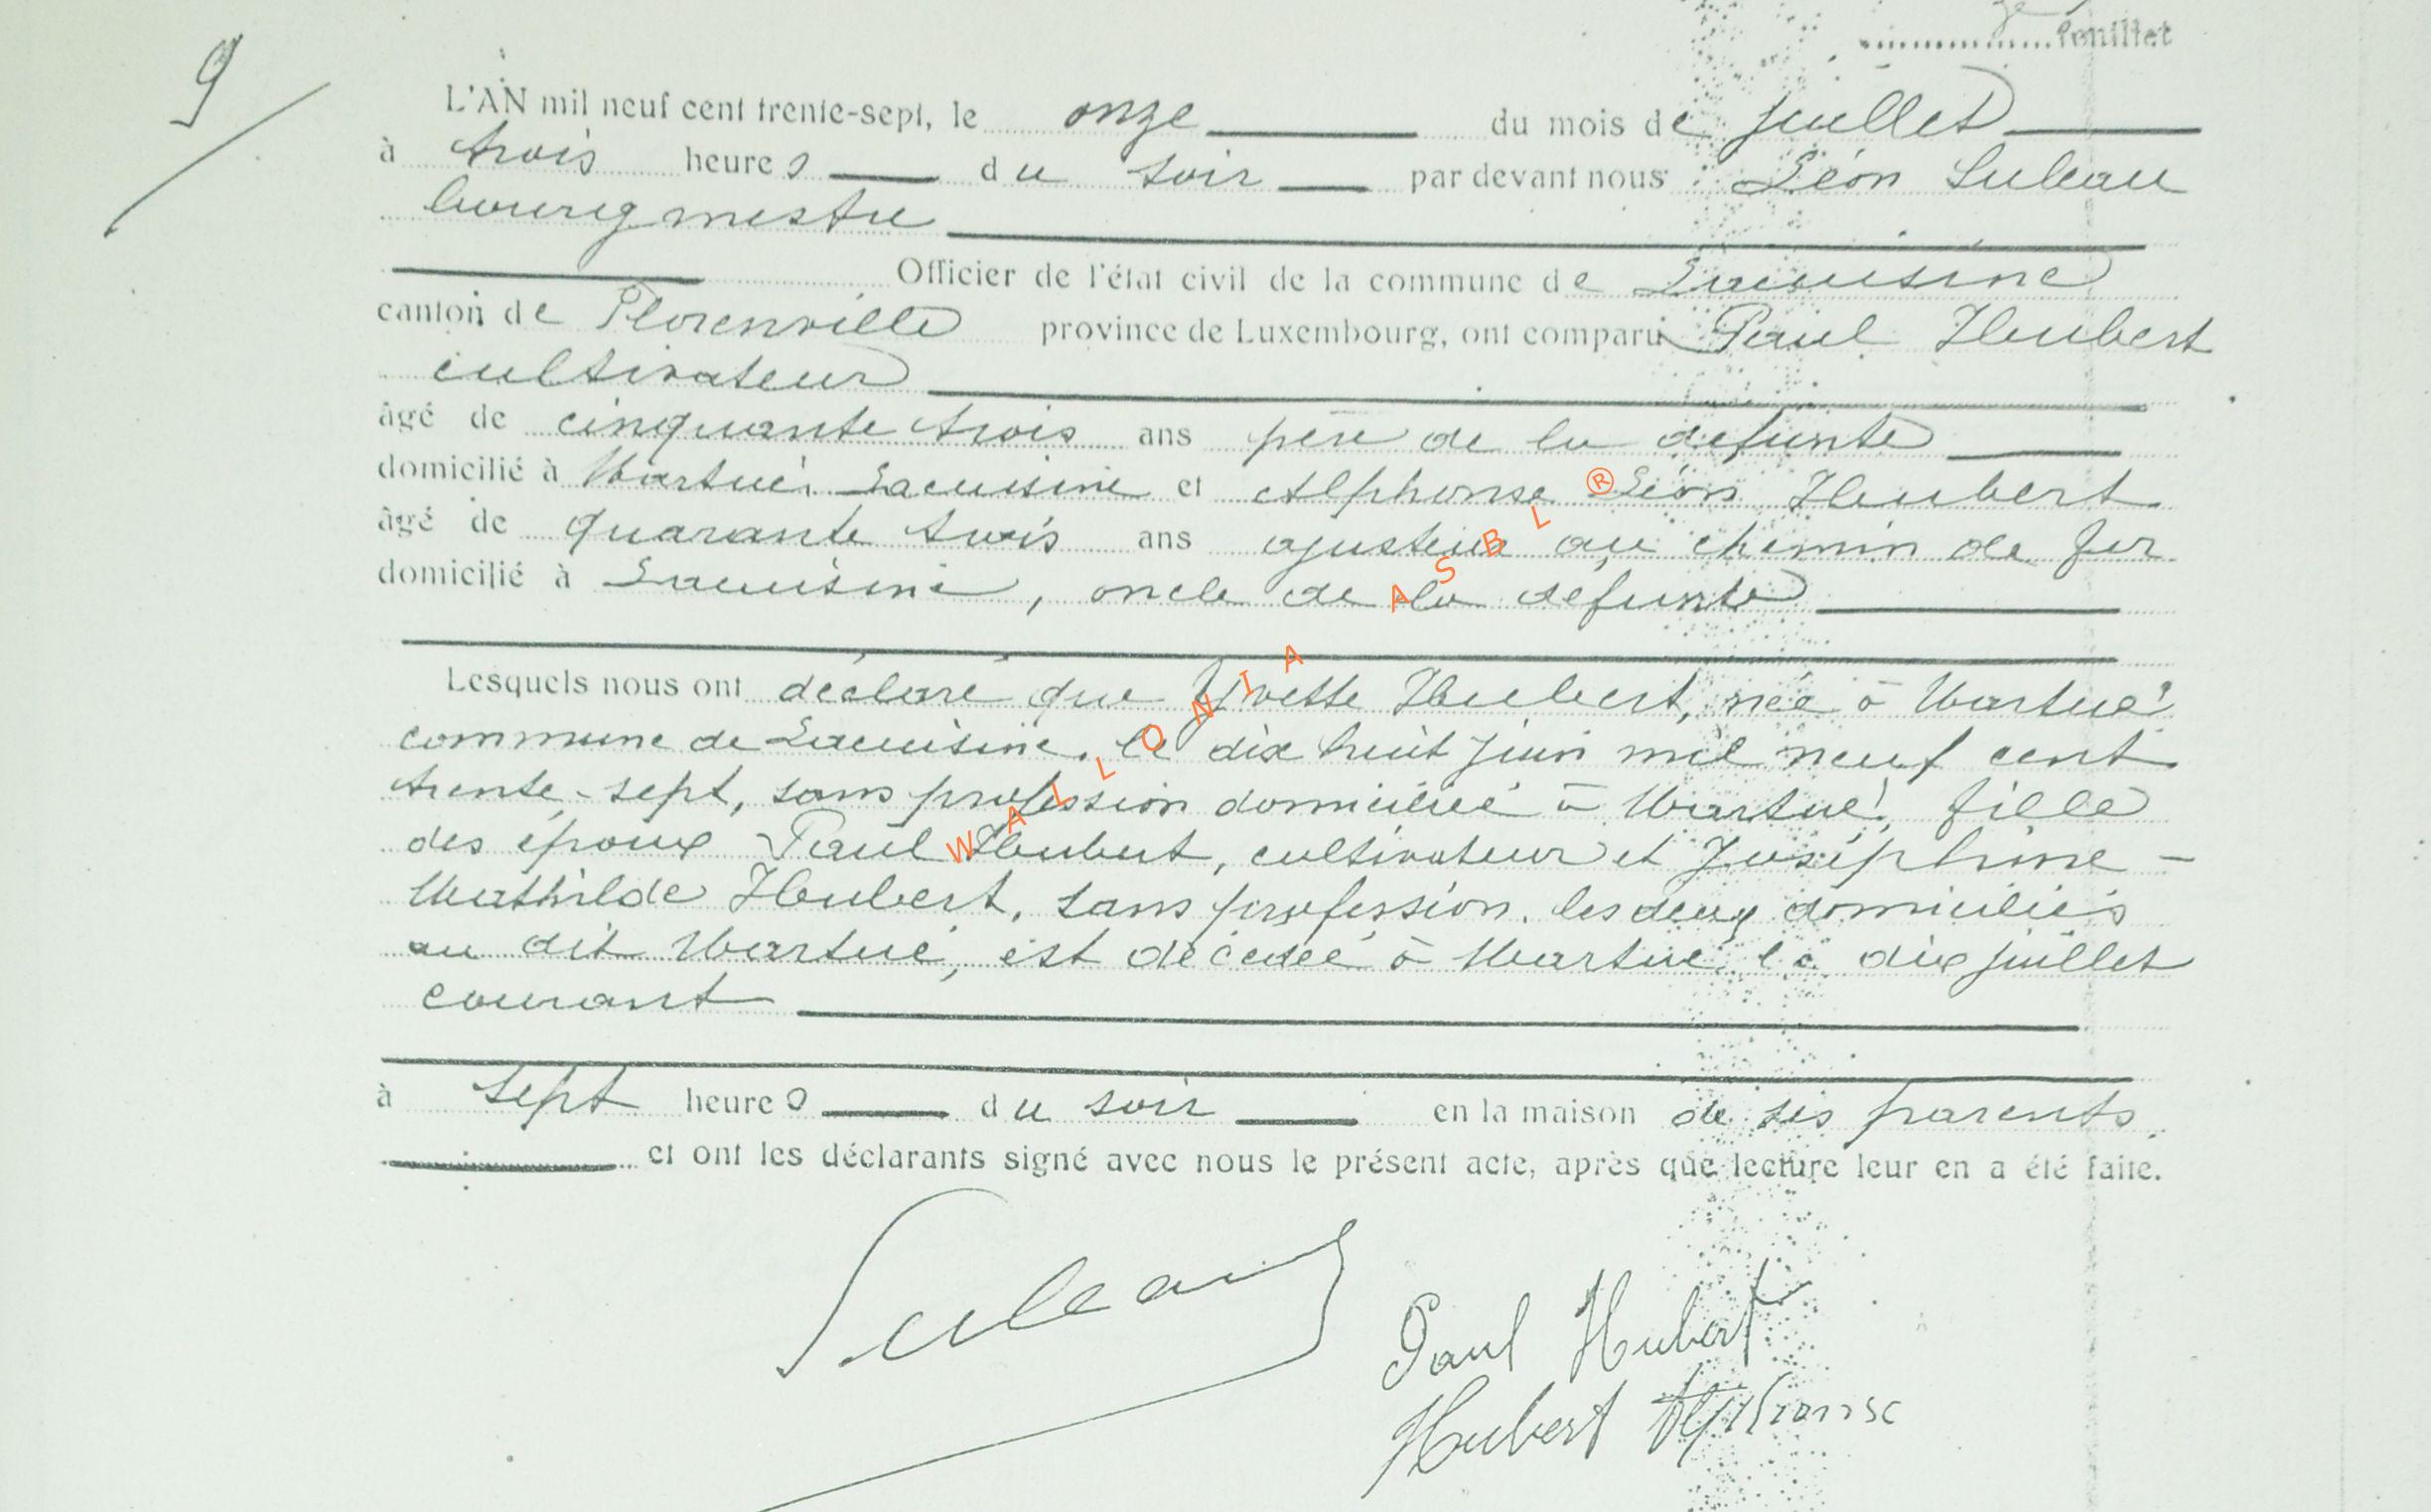 feuillet
9
L'AN mil neuf cent trente-sept, le onze du mois de juillet
à trois heures du soir par devant nous Léon Suleau
bourgmestre
Officier de l'état civil de la commune de Lacuisine
canton de Florenville province de Luxembourg, ont comparu Paul Hubert
cultivateur
âgé de cinquante trois ans père de la défunte
domicilié à Martué, Lacuisine et Alphonse Léon Hubert
âgé de quarante trois ans ajusteur au chemin de fer
domicilié à Lacuisine, oncle de la défunte
Lesquels nous ont déclaré que Yvette Hubert, née à Martué
commune de Lacuisine, le dix huit juin mil neuf cent
trente-sept, sans profession domiciliée à Martué, fille
des époux Paul Hubert, cultivateur et Joséphine-
Mathilde Hubert, sans profession, les deux domiciliés
au dit Martué, est décédée à Martué, le dix juillet
courant
à sept heures du soir en la maison de ses parents
et ont les déclarants signé avec nous le présent acte, après que lecture leur en a été faite.
Suleau
Paul Hubert
Hubert Alphonse
WALLONIA ASBL ®